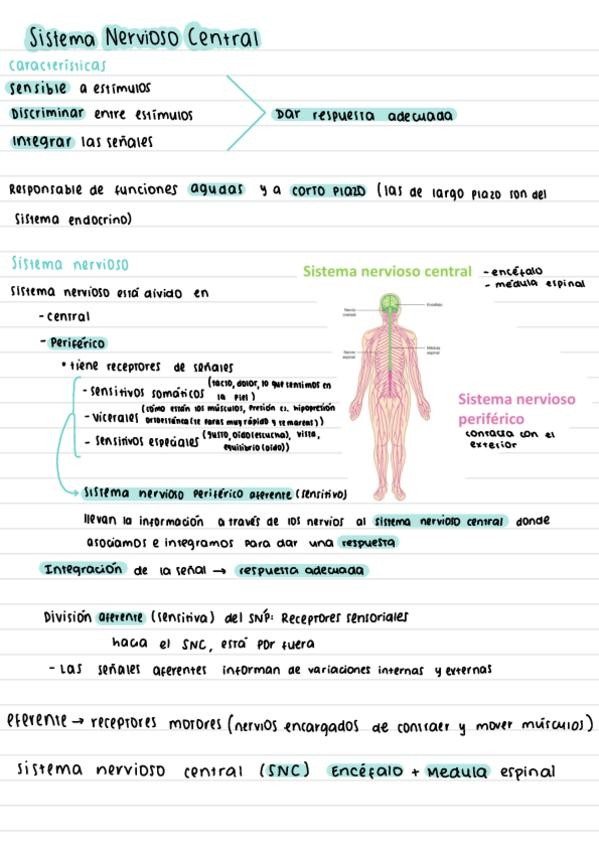 Sistema Nervioso Central
características
sensible a estímulos
Discriminar entre estímulos
Dar respuesta adecuada
Integrar las señales
Responsable de funciones agudas y a corto plazo (las de largo plazo son del
sistema endocrino)
Sistema nervioso
Sistema nervioso central
- encéfalo
- médula espinal
sistema nervioso está divido en
- central
- Periférico
• tiene receptores de señales
- sensitivos somáticos (tacto, dolor, lo que sentimos en
la piel)
- vicerales (cómo están los músculos, presión ej. hipopresión
ortoestánica (te paras muy rápido y te mareas))
- sensitivos especiales (gusto, oído (escucha), vista,
equilibrio (oído))
Nervio
craneal
Encéfalo
Nervio
espinal
Médula
espinal
Sistema nervioso
periférico
contacta con el
exterior
sistema nervioso periférico aferente (sensitivo)
llevan la información a través de los nervios al sistema nervioso central donde
asociamos e integramos para dar una respuesta
Integración de la señal → respuesta adecuada
División aferente (sensitiva) del SNP: Receptores sensoriales
hacia el SNC, está por fuera
- Las señales aferentes informan de variaciones internas y externas
eferente → receptores motores (nervios encargados de contraer y mover músculos)
sistema nervioso central (SNC) Encéfalo + Medula espinal